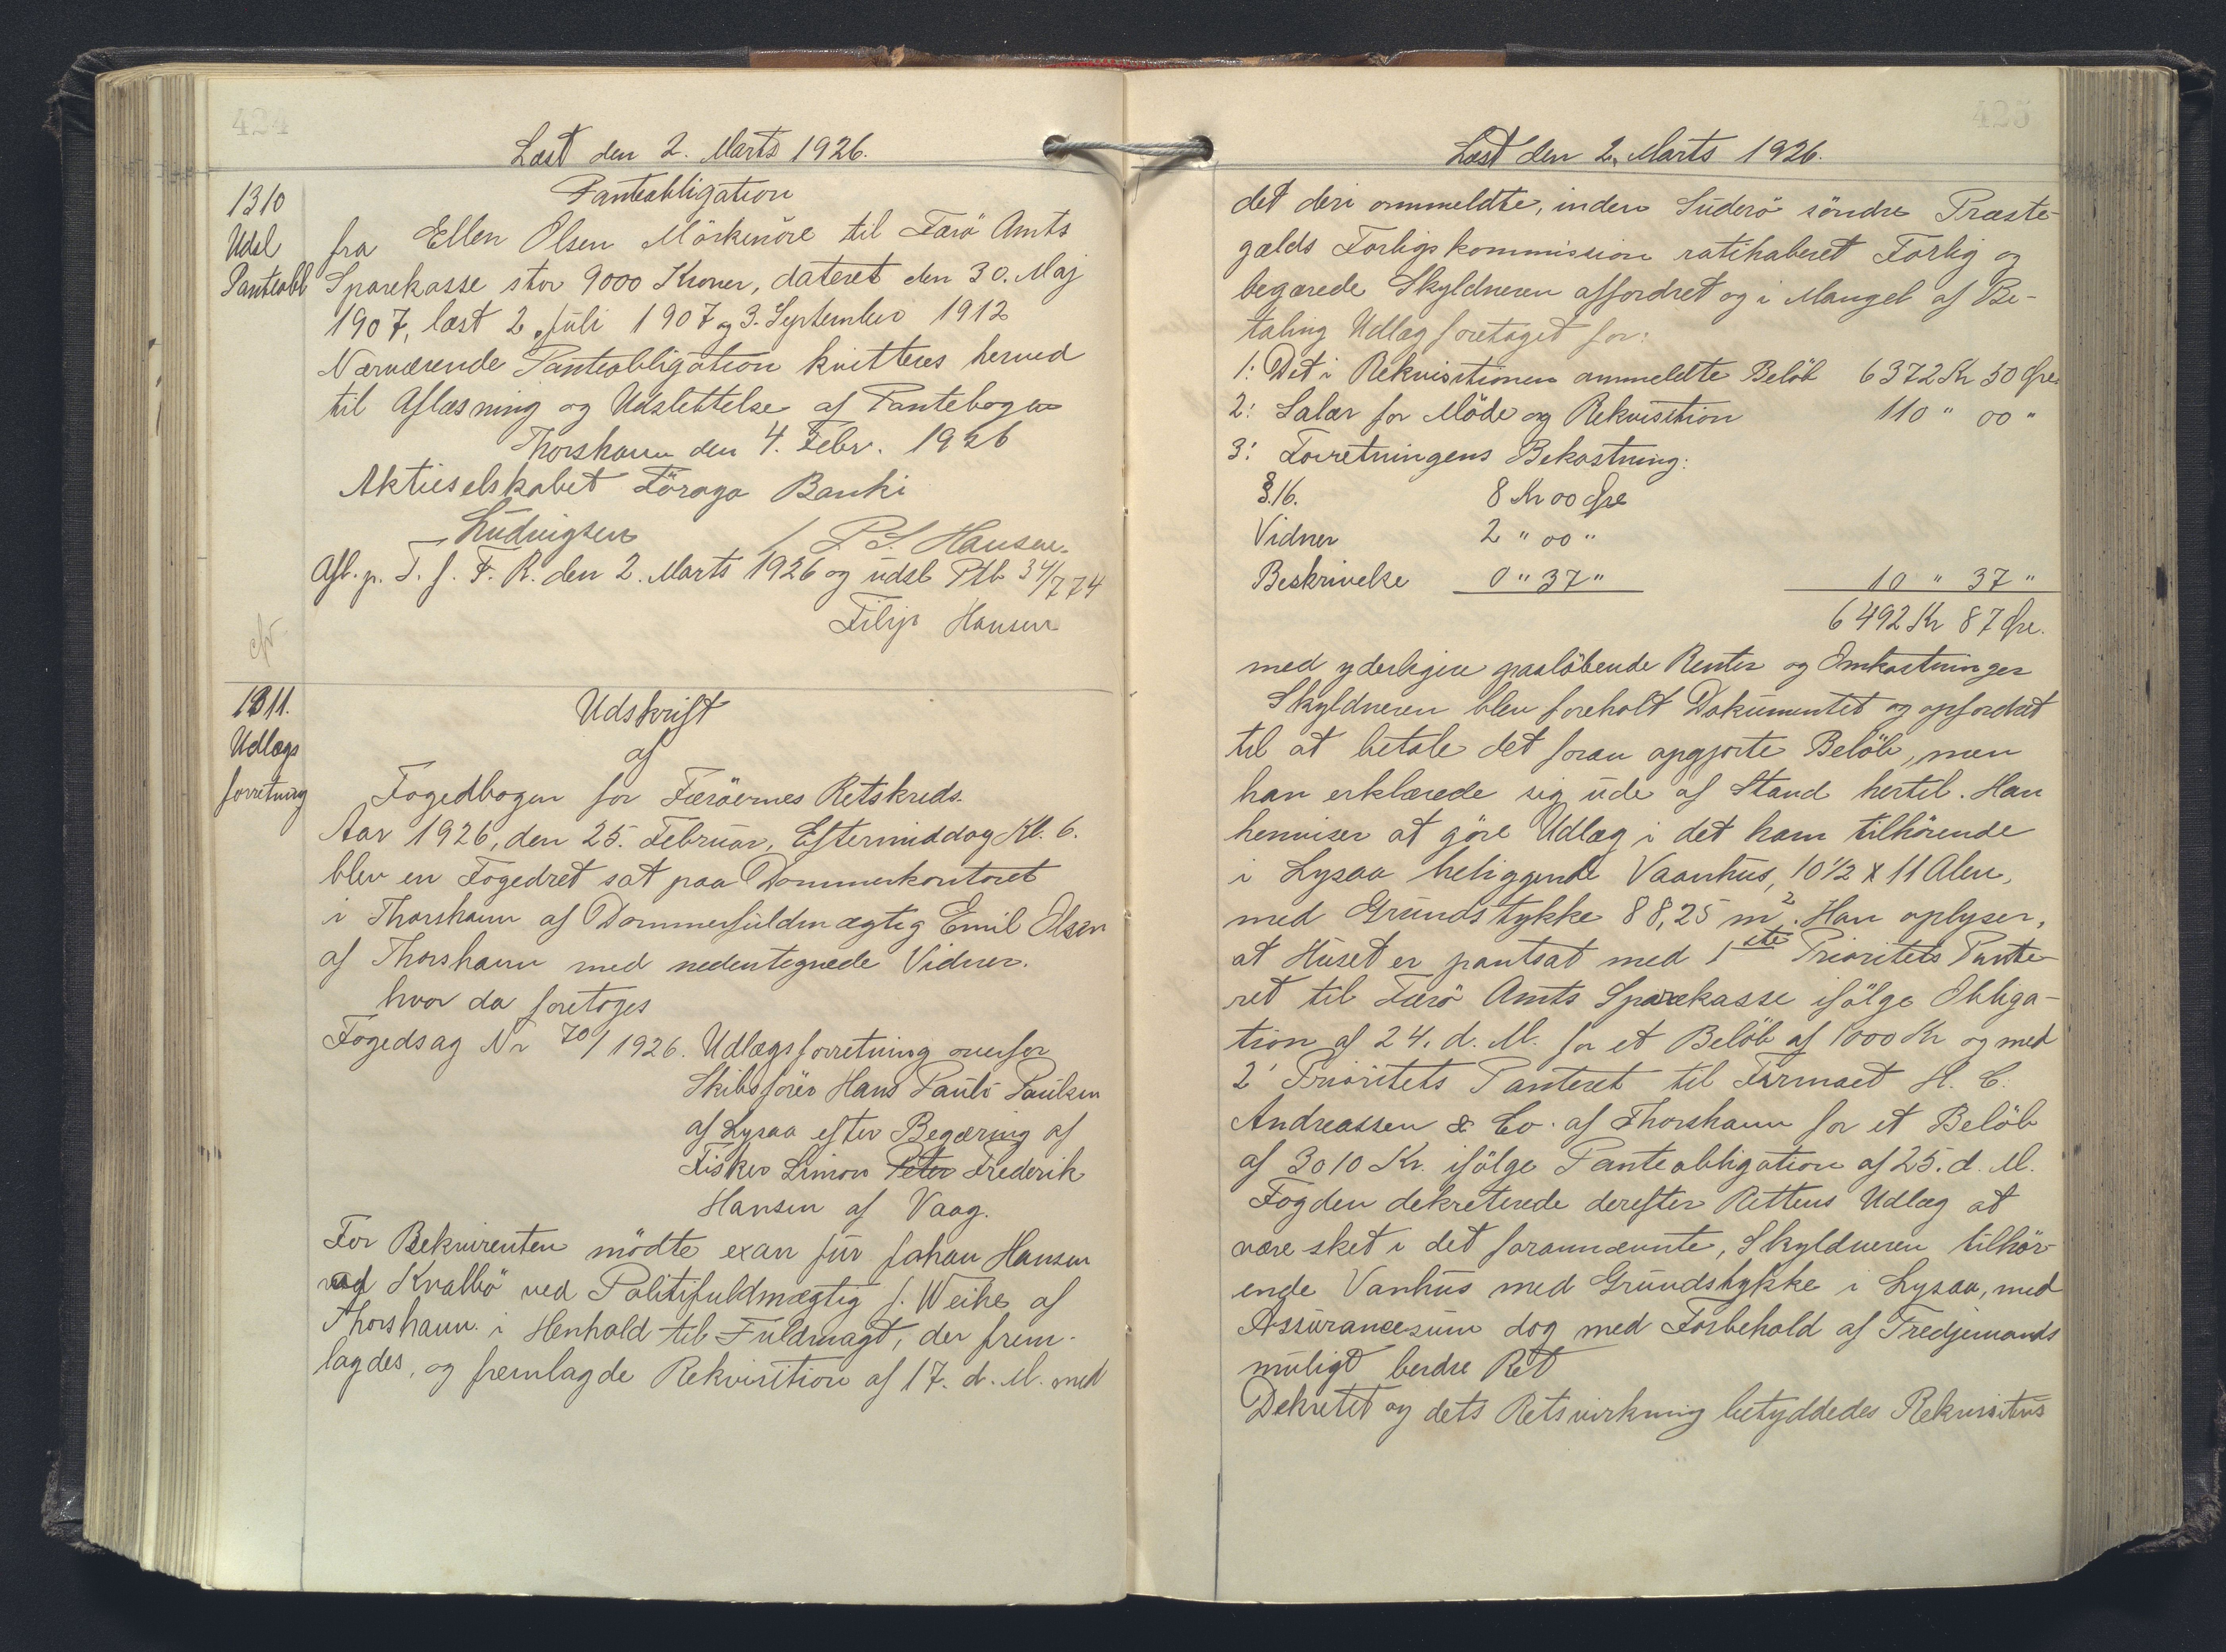 424
Læst den 2. Marts 1926.
1310
Udsl
Panteobl
Panteobligation
fra Ellen Olsen Mörkenöre til Færö Amts
Sparekasse stor 9000 Kroner, dateret den 30. Maj
1907, læst 2 Juli 1907 og 3. September 1912
Nærværende Panteobligation kvitteres herved
til Aflæsning og Udslettelse af Pantebogen
Thorshavn den 4. Febr. 1926
Aktieselskabet Föroya Banki
Ludvigsen / P. S. Hansen.
Afl. p. T. f. F. R. den 2. Marts 1926 og udsl Ptb 34/774
Filip Hansen
cfr
1311.
Udlægs
forretning
Udskrift
af
Fogedbogen for Færöernes Retskreds.
Aar 1926, den 25. Februar, Eftermiddag Kl. 6.
blev en Fogedret sat paa Dommerkontoret
i Thorshavn af Dommerfuldmægtig Emil Olsen
af Thorshavn med nedentegnede Vidner.
hvor da foretoges
Fogedsag Nr 70/1926. Udlægsforretning overfor
Skibsförer Hans Pauli Paulsen
af Lysaa efter Begæring af
Fisker Simon Peter Frederik
Hansen af Vaag.
For Rekvirenten mödte exam jur Johan Hansen
af Kvalbö ved Politifuldmægtig J. Weihe af
Thorshavn i Henhold til Fuldmagt, der frem-
lagdes, og fremlagde Rekvisition af 17. d. M. med
425
Læst den 2. Marts 1926.
det deri ommeldte, inden Suderö söndre Præste-
gælds Forligskommission ratihaberet Forlig og
begærede Skyldneren affordret og i Mangel af Be-
taling Udlæg foretaget for:
1: Det i Rekvisitionen ommeldte Belöb 6372 Kr 50 Øre
2: Salær for Möde og Rekvisition 110 " 00 "
3: Forretningens Bekostning:
§.16. 8 Kr 00 Øre
Vidner 2 " 00 "
Beskrivelse 0 " 37 " 10 " 37 "
6492 Kr 87 Øre.
med yderligere paalöbende Renter og Omkostninger
Skyldneren blev foreholt Dokumentet og opfordret
til at betale det foran opgjorte Belöb, men
han erklærede sig ude af Stand hertil. Han
henviser at göre Udlæg i det ham tilhörende
i Lysaa beliggende Vaanhus, 10 1/2 x 11 Alen,
med Grundstykke 88,25 m². Han oplyser,
at Huset er pantsat med 1ste Prioritets Pante-
ret til Færö Amts Sparekasse ifölge Obliga-
tion af 24. d. M. for et Belöb af 1000 Kr og med
2' Prioritets Panteret til Firmaet H. C.
Andreassen & Co. af Thorshavn for et Belöb
af 3010 Kr. ifölge Panteobligation af 25. d. M.
Fogden dekreterede derefter Rettens Udlæg at
være sket i det forannævnte, Skyldneren tilhör-
ende Vanhus med Grundstykke i Lysaa, med
Assurancesum dog med Forbehold af Tredjemands
muligt bedre Ret
Dekretet og dets Retsvirkning betyddedes Rekvisitus